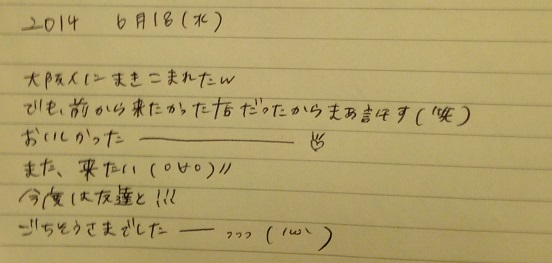 2014 6月18(水)
大阪人にまきこまれたw
でも、前から来たかった店だったからまあ許す(笑)
おいしかった ―――――
また、来たい(o∀o)//
今度は友達と!!!
ごちそうさまでした ― っっっ(´ω`)